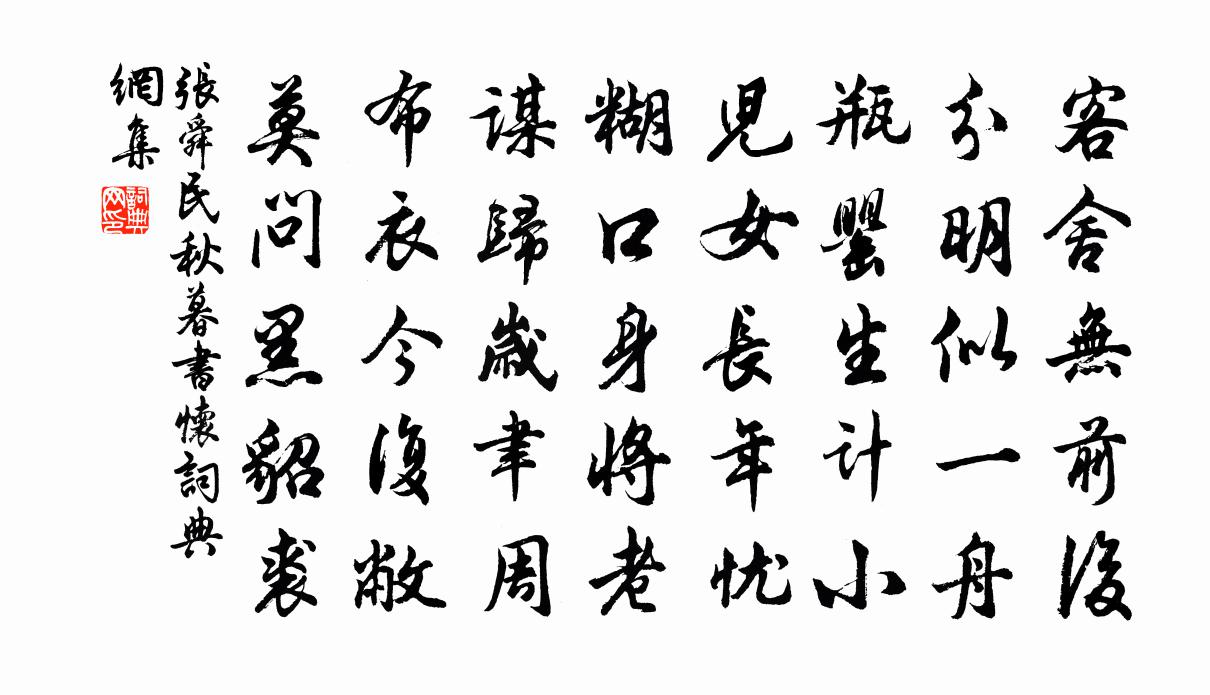 客舍無前後
分明似一舟
瓶罌生計小
兒女長年忧
糊口身將老
謀歸歲聿周
布衣今復敝
莫問黑貂裘
張舜民秋暮書懷詞典
網集
詞典網印